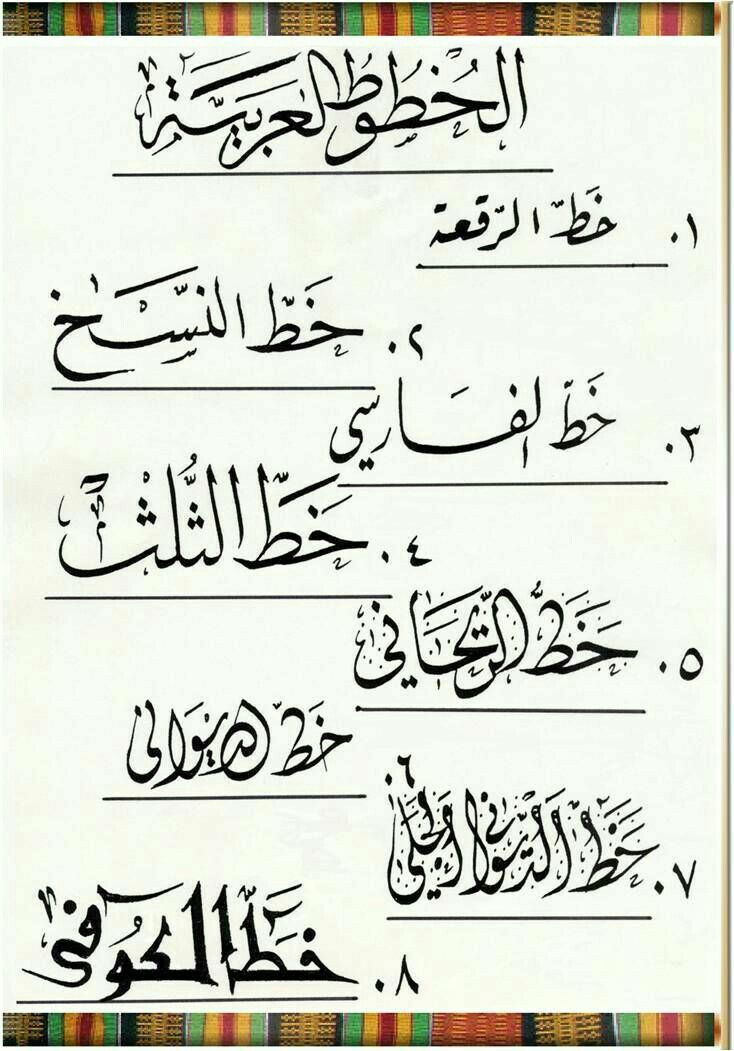 الخُطُوطُ العَرَبيَّة
١. خَطّ الرّقعة
٢. خَطّ النسَّخ
٣. خَطّ الفَارسي
٤. خَطّ الثُّلُثْ
٥. خَطُّ الرّيحَاني
٦. خَطّ الديوَاني
٧. خَطُّ الدّيوَاني الجَلي
٨. خَطّ الكُوفي